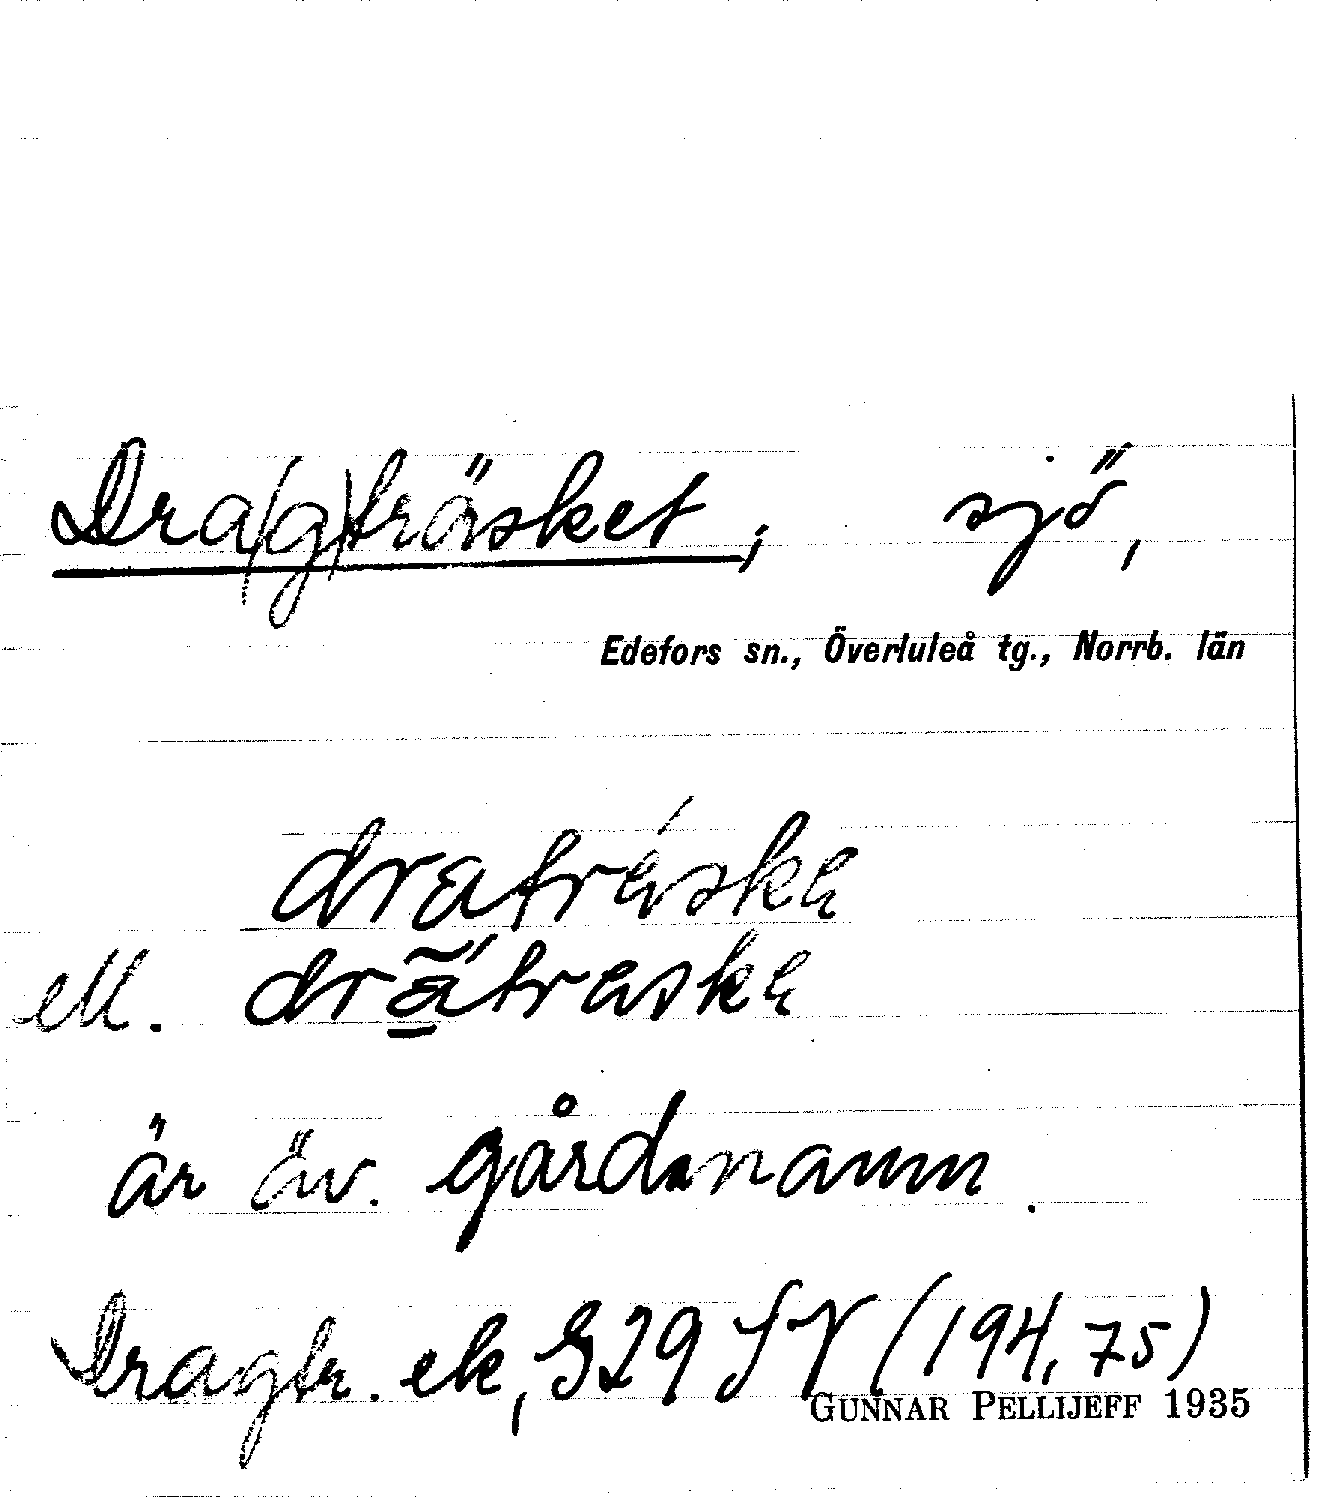 Dra(g)träsket; sjö,
Edefors sn., Överluleå tg., Norrb. län
dratráska
ell. drã́traska
är äv. gårdsnamn.
Dragtr. ek, 29 SV (194,75)
GUNNAR PELLIJEFF 1935